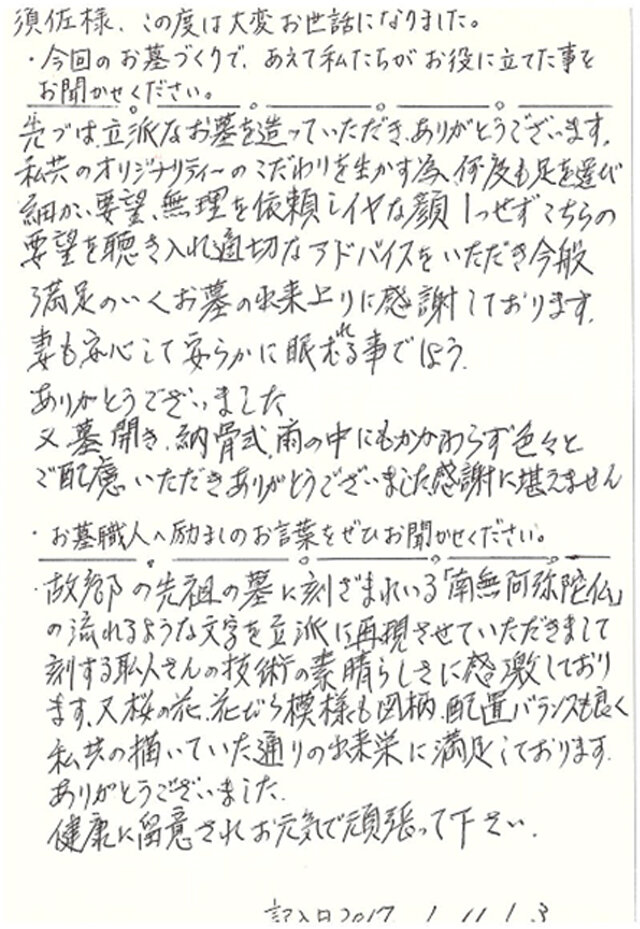 須佐様、この度は大変お世話になりました。
・今回のお墓づくりで、あえて私たちがお役に立てた事を
お聞かせください。
先づは立派なお墓を造っていただき、ありがとうございます。
私共のオリジナリティーのこだわりを生かす為、何度も足を運び
細かい要望、無理を依頼しイヤな顔1つせずこちらの
要望を聴き入れ適切なアドバイスをいただき今般
満足のいくお墓の出来上りに感謝しております。
妻も安心して安らかに眠れる事でしょう。
ありがとうございました
又墓開き、納骨式、雨の中にもかかわらず色々と
ご配慮いただきありがとうございました感謝に堪えません
・お墓職人へ励ましのお言葉をぜひお聞かせください。
故郷の先祖の墓に刻ざまれいる「南無阿弥陀仏」
の流れるような文字を立派に再現させていただきまして
刻する職人さんの技術の素晴らしさに感激しており
ます。又桜の花、花びら模様も図柄、配置バランスも良く
私共の描いていた通りの出来栄に満足しております。
ありがとうございました。
健康に留意されお元気で頑張って下さい。
記入日2017 / 11 / 3